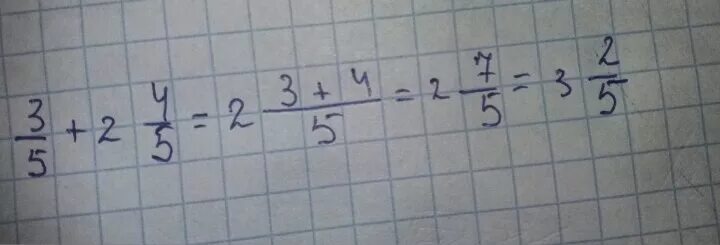 3/5 + 2 4/5 = 2 3+4/5 = 2 7/5 = 3 2/5